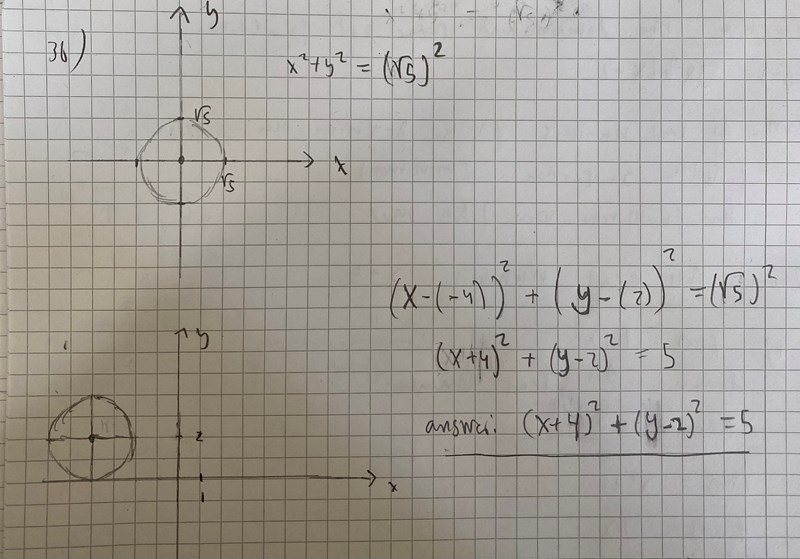 y
36)
x²+y² = (√5)²
√5
x
√5
(x-(-4))² + (y-(2))² = (√5)²
y
(x+4)² + (y-2)² = 5
answer: (x+4)² + (y-2)² = 5
2
x
1